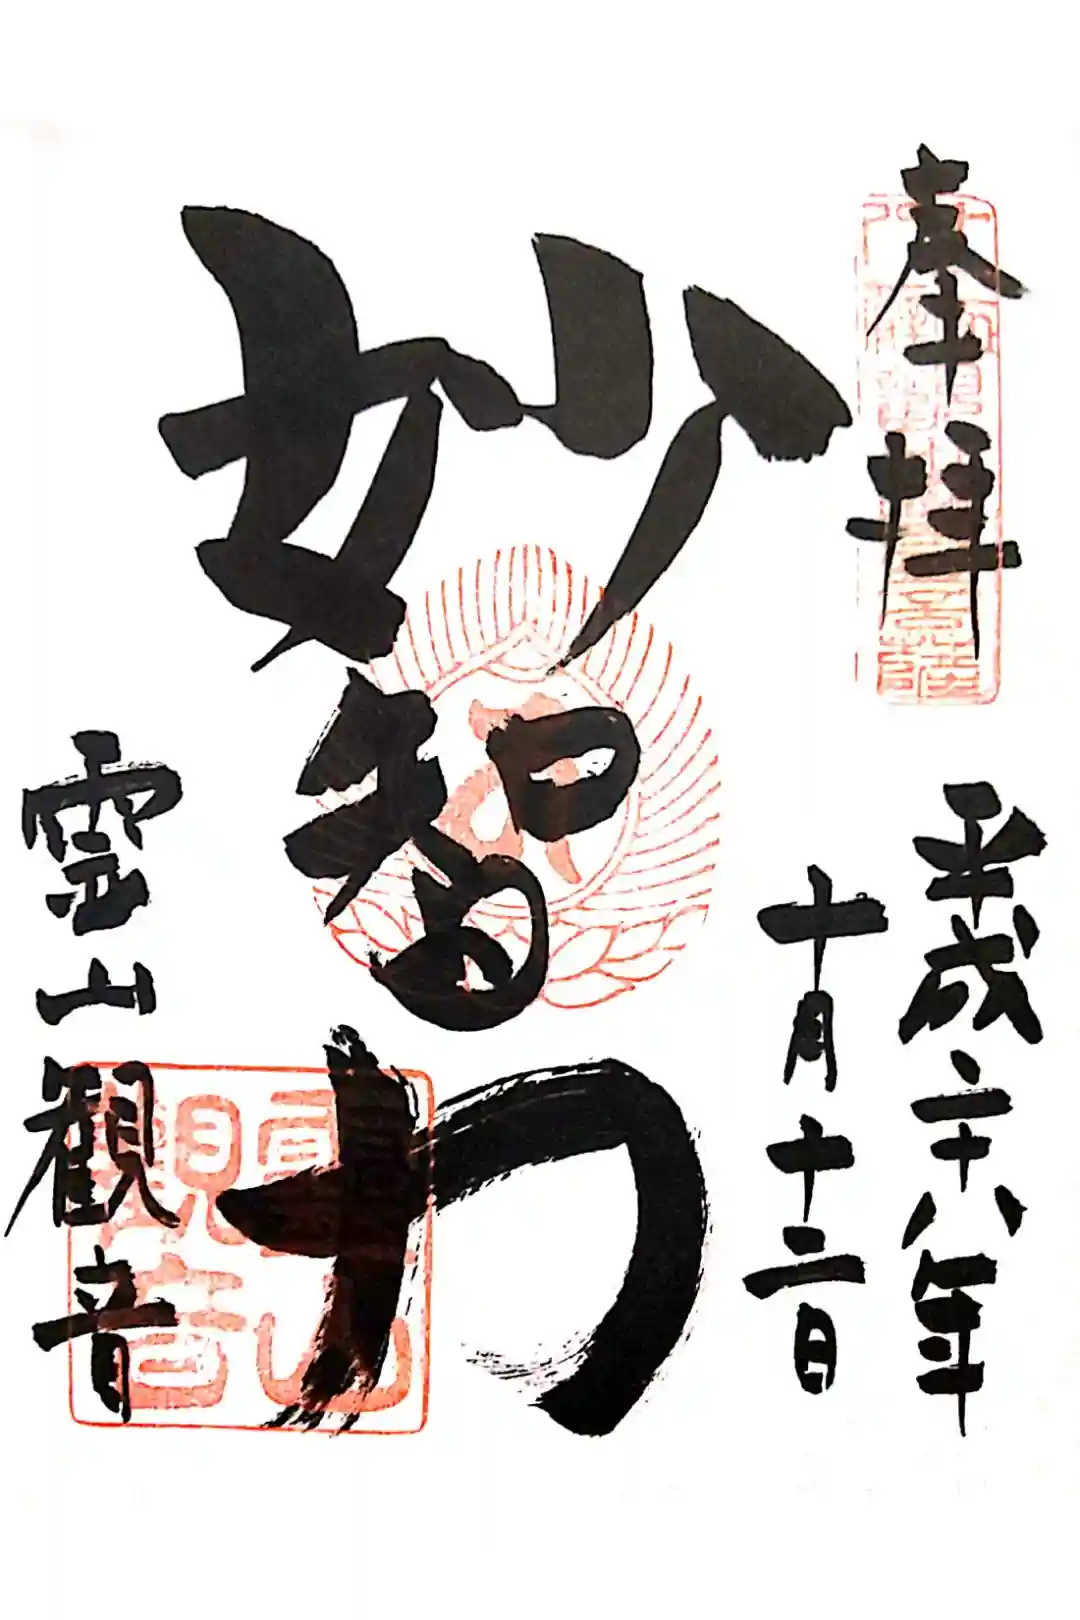 奉拝
平成二十八年
十月十二日
妙智力
霊山観音
霊山観音